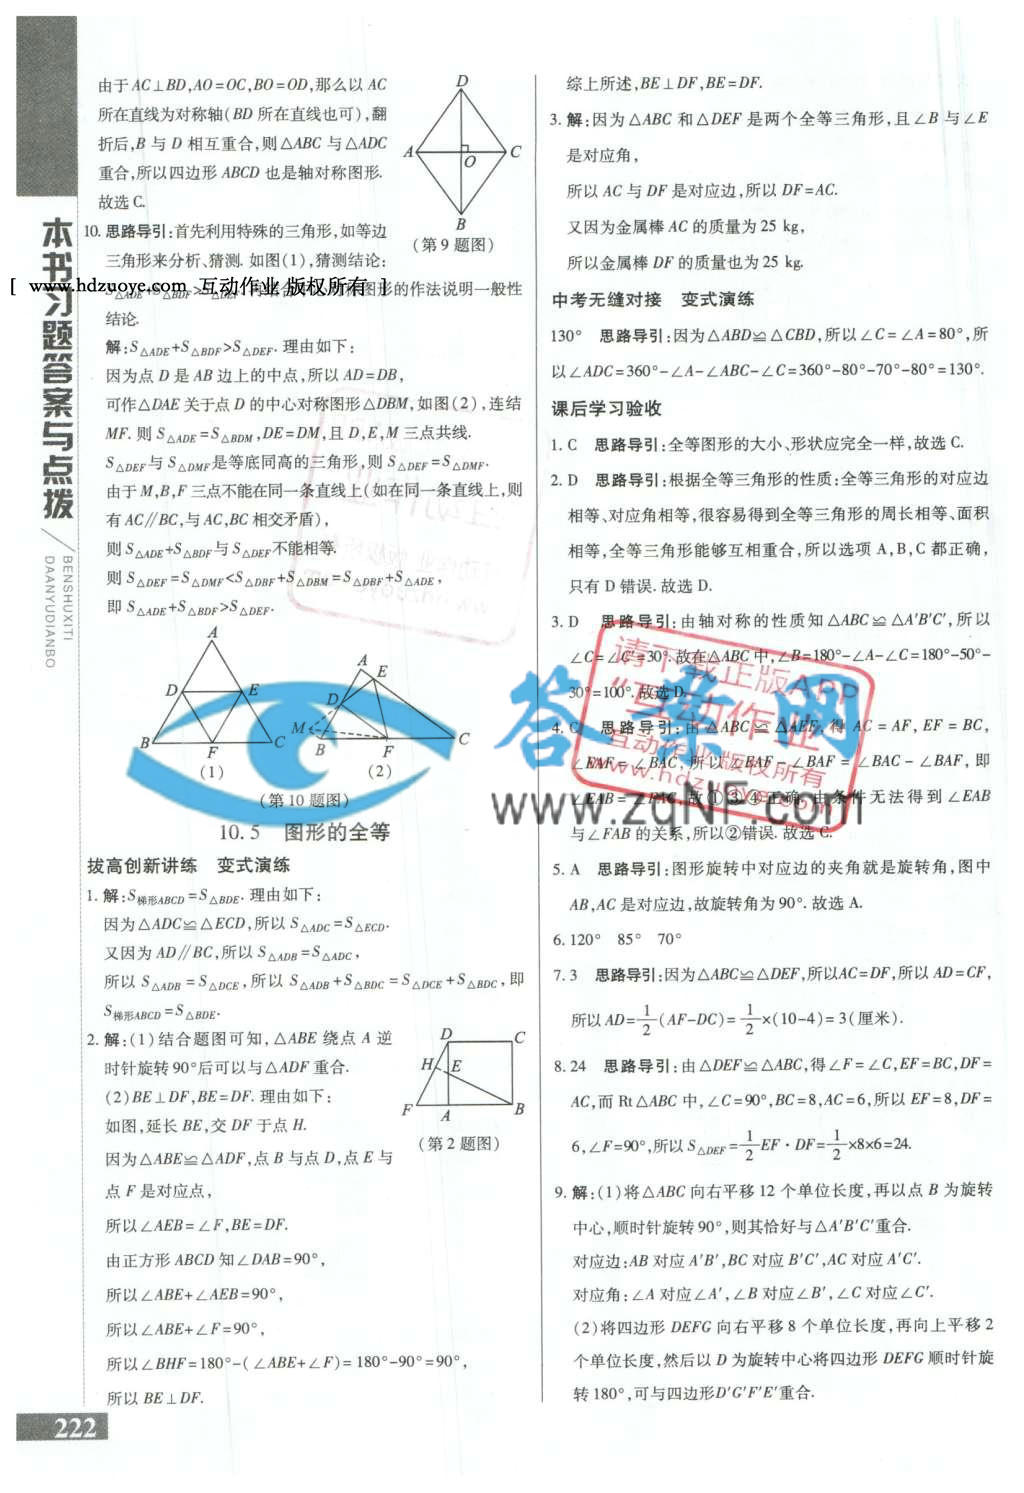 本书习题答案与点拨
BENSHUXITI
DAANYUDIANBO
由于 AC⊥BD,AO=OC,BO=OD,那么以 AC
所在直线为对称轴(BD 所在直线也可),翻
折后,B 与 D 相互重合,则△ABC 与△ADC
重合,所以四边形 ABCD 也是轴对称图形.
故选 C.
D
A
O
C
B
(第 9 题图)
10. 思路导引:首先利用特殊的三角形,如等边
三角形来分析、猜测. 如图(1),猜测结论:
[ www.hdzuoye.com 互动作业 版权所有 ]
图形的作法说明一般性
结论.
解:S△ADE+S△BDF>S△DEF. 理由如下:
因为点 D 是 AB 边上的中点,所以 AD=DB,
可作△DAE 关于点 D 的中心对称图形△DBM,如图(2),连结
MF. 则 S△ADE=S△BDM,DE=DM,且 D,E,M 三点共线.
S△DEF与 S△DMF是等底同高的三角形,则 S△DEF=S△DMF.
由于 M,B,F 三点不能在同一条直线上(如在同一条直线上,则
有 AC∥BC,与 AC,BC 相交矛盾),
则 S△ADE+S△BDF与 S△DEF不能相等.
则 S△DEF=S△DMF<S△DBF+S△DBM=S△DBF+S△ADE,
即 S△ADE+S△BDF>S△DEF.
A
D
E
B
F
C
(1)
A
E
D
M
B
F
C
(2)
(第 10 题图)
10.5 图形的全等
拔高创新讲练 变式演练
1. 解:S梯形ABCD=S△BDE. 理由如下:
因为△ADC≌△ECD,所以 S△ADC=S△ECD.
又因为 AD∥BC,所以 S△ADB=S△ADC,
所以 S△ADB=S△DCE,所以 S△ADB+S△BDC=S△DCE+S△BDC,即
S梯形ABCD=S△BDE.
2. 解:(1)结合题图可知,△ABE 绕点 A 逆
时针旋转 90°后可以与△ADF 重合.
(2)BE⊥DF,BE=DF. 理由如下:
如图,延长 BE,交 DF 于点 H.
因为△ABE≌△ADF,点 B 与点 D,点 E 与
点 F 是对应点,
所以∠AEB=∠F,BE=DF.
由正方形 ABCD 知∠DAB=90°,
所以∠ABE+∠AEB=90°,
所以∠ABE+∠F=90°,
所以∠BHF=180°-(∠ABE+∠F)=180°-90°=90°,
所以 BE⊥DF.
D
C
H
E
F
A
B
(第 2 题图)
222
综上所述,BE⊥DF,BE=DF.
3. 解:因为△ABC 和△DEF 是两个全等三角形,且∠B 与∠E
是对应角,
所以 AC 与 DF 是对应边,所以 DF=AC.
又因为金属棒 AC 的质量为 25 kg,
所以金属棒 DF 的质量也为 25 kg.
中考无缝对接 变式演练
130° 思路导引:因为△ABD≌△CBD,所以∠C=∠A=80°,所
以∠ADC=360°-∠A-∠ABC-∠C=360°-80°-70°-80°=130°.
课后学习验收
1. C 思路导引:全等图形的大小、形状应完全一样,故选 C.
2. D 思路导引:根据全等三角形的性质:全等三角形的对应边
相等、对应角相等,很容易得到全等三角形的周长相等、面积
相等,全等三角形能够互相重合,所以选项 A,B,C 都正确,
只有 D 错误. 故选 D.
3. D 思路导引:由轴对称的性质知△ABC≌△A′B′C′,所以
∠C=∠C′=30°. 故在△ABC 中,∠B=180°-∠A-∠C=180°-50°-
30°=100°. 故选 D.
4. C 思路导引:由△ABC≌△AEF,得 AC=AF,EF=BC,
∠EAF=∠BAC,所以∠EAF-∠BAF=∠BAC-∠BAF,即
∠EAB=∠FAC,故①③④正确,由条件无法得到∠EAB
与∠FAB 的关系,所以②错误. 故选 C.
请下载正版APP
“互动作业”
互动作业版权所有
www.hdzuoye.com
答案网
www.zqNF.com
5. A 思路导引:图形旋转中对应边的夹角就是旋转角,图中
AB,AC 是对应边,故旋转角为 90°. 故选 A.
6. 120° 85° 70°
7. 3 思路导引:因为△ABC≌△DEF,所以AC=DF,所以 AD=CF,
所以 AD=1/2(AF-DC)=1/2×(10-4)=3(厘米).
8. 24 思路导引:由△DEF≌△ABC,得∠F=∠C,EF=BC,DF=
AC,而 Rt△ABC 中,∠C=90°,BC=8,AC=6,所以 EF=8,DF=
6,∠F=90°,所以 S△DEF=1/2EF·DF=1/2×8×6=24.
9. 解:(1)将△ABC 向右平移 12 个单位长度,再以点 B 为旋转
中心,顺时针旋转 90°,则其恰好与△A′B′C′重合.
对应边:AB 对应 A′B′,BC 对应 B′C′,AC 对应 A′C′.
对应角:∠A 对应∠A′,∠B 对应∠B′,∠C 对应∠C′.
(2)将四边形 DEFG 向右平移 8 个单位长度,再向上平移 2
个单位长度,然后以 D 为旋转中心将四边形 DEFG 顺时针旋
转 180°,可与四边形D′G′F′E′重合.